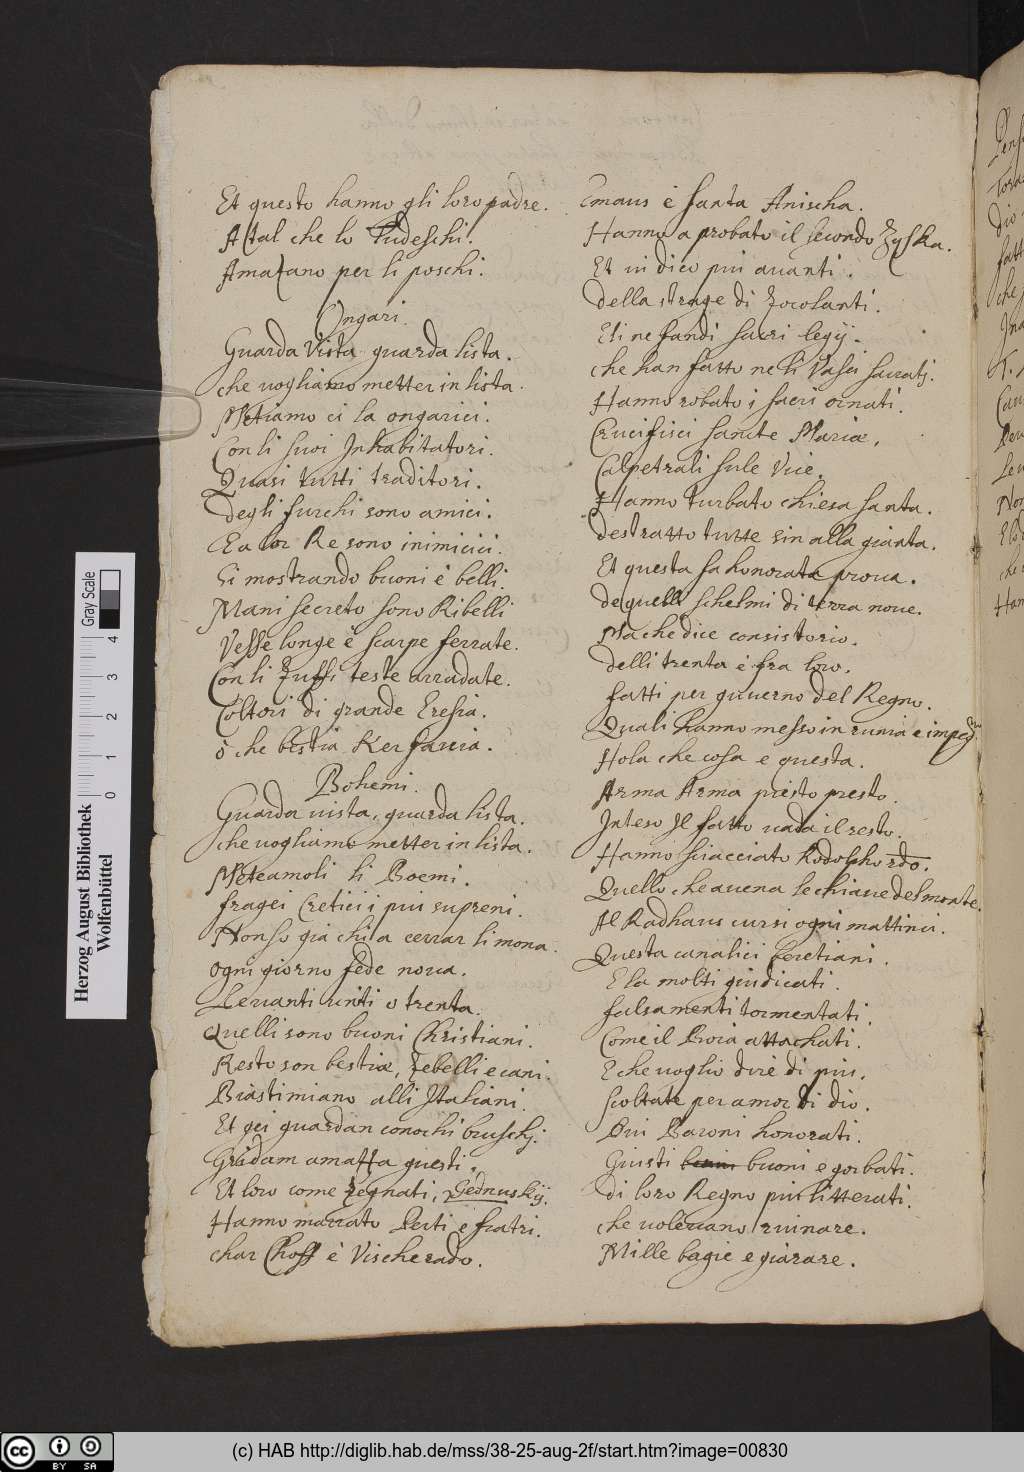 Et questo hanno gli loro padre.
Altal che lo Tudeschi.
Amazano per li poschi.
Ongari.
Guarda Vista guarda lista.
che uogliamo metter in lista.
Metiamo ci la ongarici.
Con li suoi Inhabitatori.
Quasi tutti traditori.
degli furchi sono amici.
E a lor Re sono inimicii.
Si mostrando buoni è belli.
Mani secreto sono Ribelli
Vesse longe è scarpe ferrate.
Con li Zuffi teste arradate.
Coltori di grande Eresia.
ò che bestia Ker
Bohemi.
Guarda uista, guarda lista.
che uogliamo metter in lista.
Meteamoli li Boemi.
fragei Cretici i piu supreni.
Non so gia chi la cerrar li mona.
ogni giorno fede noua.
Leuanti uinti o trenta.
Quelli sono buoni Christiani.
Resto son bestiæ, rebelli e cani.
Biastimiano alli Italiani.
Et gei guardan conochi bruschj.
Gridam amazza questi.
Et loro come regnati, Gednuskÿ.
Hanno mazzato Preti e fratri.
char Choff è Vischerado.
Emaus è santa Anischa.
Hanno a probato il secondo Zyska.
Et ui dico piu auanti.
della strage di Zocolanti.
Eti nefandi sacri legÿ.
che han fatto ne li Vasci sacratj.
Hanno robato i sacri ornati.
Crucifisci sancte Mariæ.
Calpetrali sule Vie.
Hanno turbato chiesa santa.
destratto tutte sin alla pianta.
Et questa sa honorata proua.
dequelli schelmi di terra noue.
Ma che dice consistorio.
delli trenta è fra loro.
fatti per guuerno del Regno.
Quali hanno messo in ruuia è
Hola che cosa e questa.
Arma Arma presto presto.
Inteso Il fatto uada il resto.
Hanno sciacciato Rodolpho rdo.
Quello che auena le chiaue del monte.
Al Radhaus cursi ogni mattina.
Questa canalici Heretiani.
E la molti giudicati.
falsamenti tormentati.
Come il Boia attachati.
E che uoglio dire di piu.
scoltate per amor di dio.
Piu Baroni honorati.
Giusti buoni e gorbati.
di loro Regno piu litterati.
che uoleuano ruinare.
Mille bagie e giarare.
Gray Scale
0 1 2 3 4
Herzog August Bibliothek
Wolfenbüttel
cc BY SA
(c) HAB http://diglib.hab.de/mss/38-25-aug-2f/start.htm?image=00830